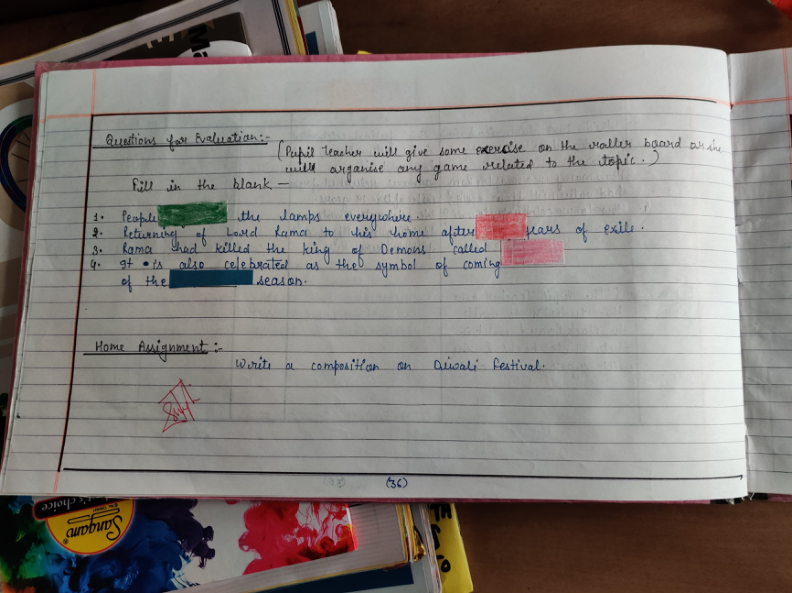 Questions for Evaluation:-
(Pupil teacher will give some exercise on the roller board or she
will organise any game related to the topic.)
Fill in the blank —
1. People the lamps everywhere.
2. Returning of Lord Rama to his home after years of exile.
3. Rama had killed the king of Demons called
4. It is also celebrated as the symbol of coming
of the season.
Home Assignment :-
Write a composition on Diwali Festival.
(36)
Sangam
choice